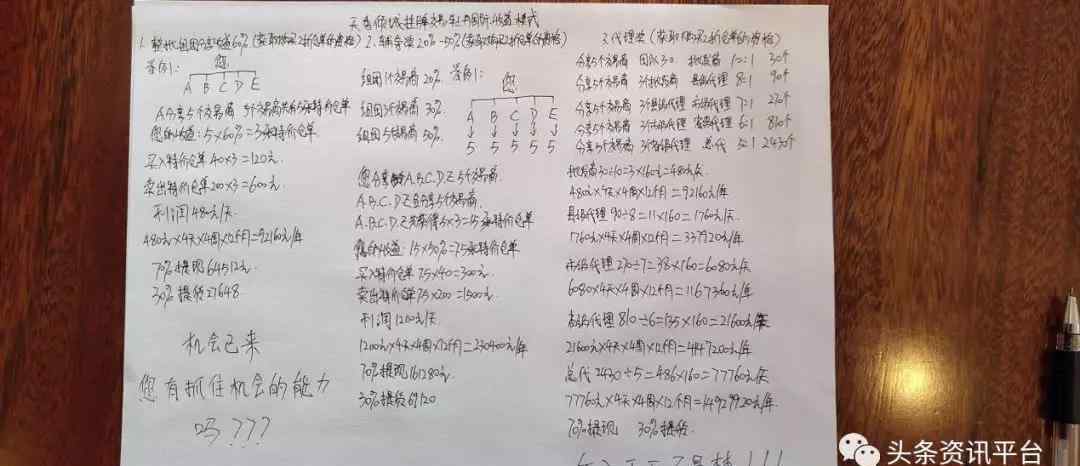 天香倾城挂牌交易
收益模式
1.
组团分享收益60%(获取
2折仓单的资格)
举例1:
您
A B C D E
A分享5个交易商
5张特价仓单
您的收益:5×60%=3张特价仓单
买入特价仓单 40×3=120元
卖出特价仓单200×3=600元
利润480元/天
480元×4天×4周×12个月=92160元/年
70%提现 64512元
30%提货27648
机会已来
您有抓住机会的能力
吗???
2.
20%-50%(获取
2折仓单的资格)
组团1个交易商 20%
组团3个交易商 30%
组团5个交易商 50%
举例1:
您
A B C D E
5 5 5 5 5
您分享
A.B.C.D.E 5个交易商
A.B.C.D.E各分享5个交易商
A.B.C.D.E共获得5×3=15张特价仓单
您的收益:15×50%=7.5张特价仓单
买入特价仓单 7.5×40=300元
卖出特价仓单7.5×200=1500元
利润1200元/天
1200元×4天×4周×12个月=230400元/年
70%提现161280元
30%提货69120
3.代理
(获取
2折仓单的资格)
分享5个交易商 团队30 批发商 10:1 30个
分享5个交易商 3个批发商 县级代理 8:1 90个
分享5个交易商 3个县级代理 市级代理 7:1 270个
分享5个交易商 3个市级代理 省级代理 6:1 810个
分享5个交易商 3个省级代理 总代 5:1 2430个
批发商30÷10=3×160元=480元/天
480元×4天×4周×12个月=92160元/年
县级代理 90÷8=11×160=1760元/天
1760元×4天×4周×12个月=337920元/年
市级代理270÷7=38×160=6080元/天
6080×4天×4周×12个月=1167360元/年
省级代理 810÷6=135×160=21600元/天
21600元×4天×4周×12个月=4147200元/年
总代 2430÷5=486×160=77760元/天
77760元×4天×4周×12个月=14929920元/年
70%提现 30%提货
头条资讯平台